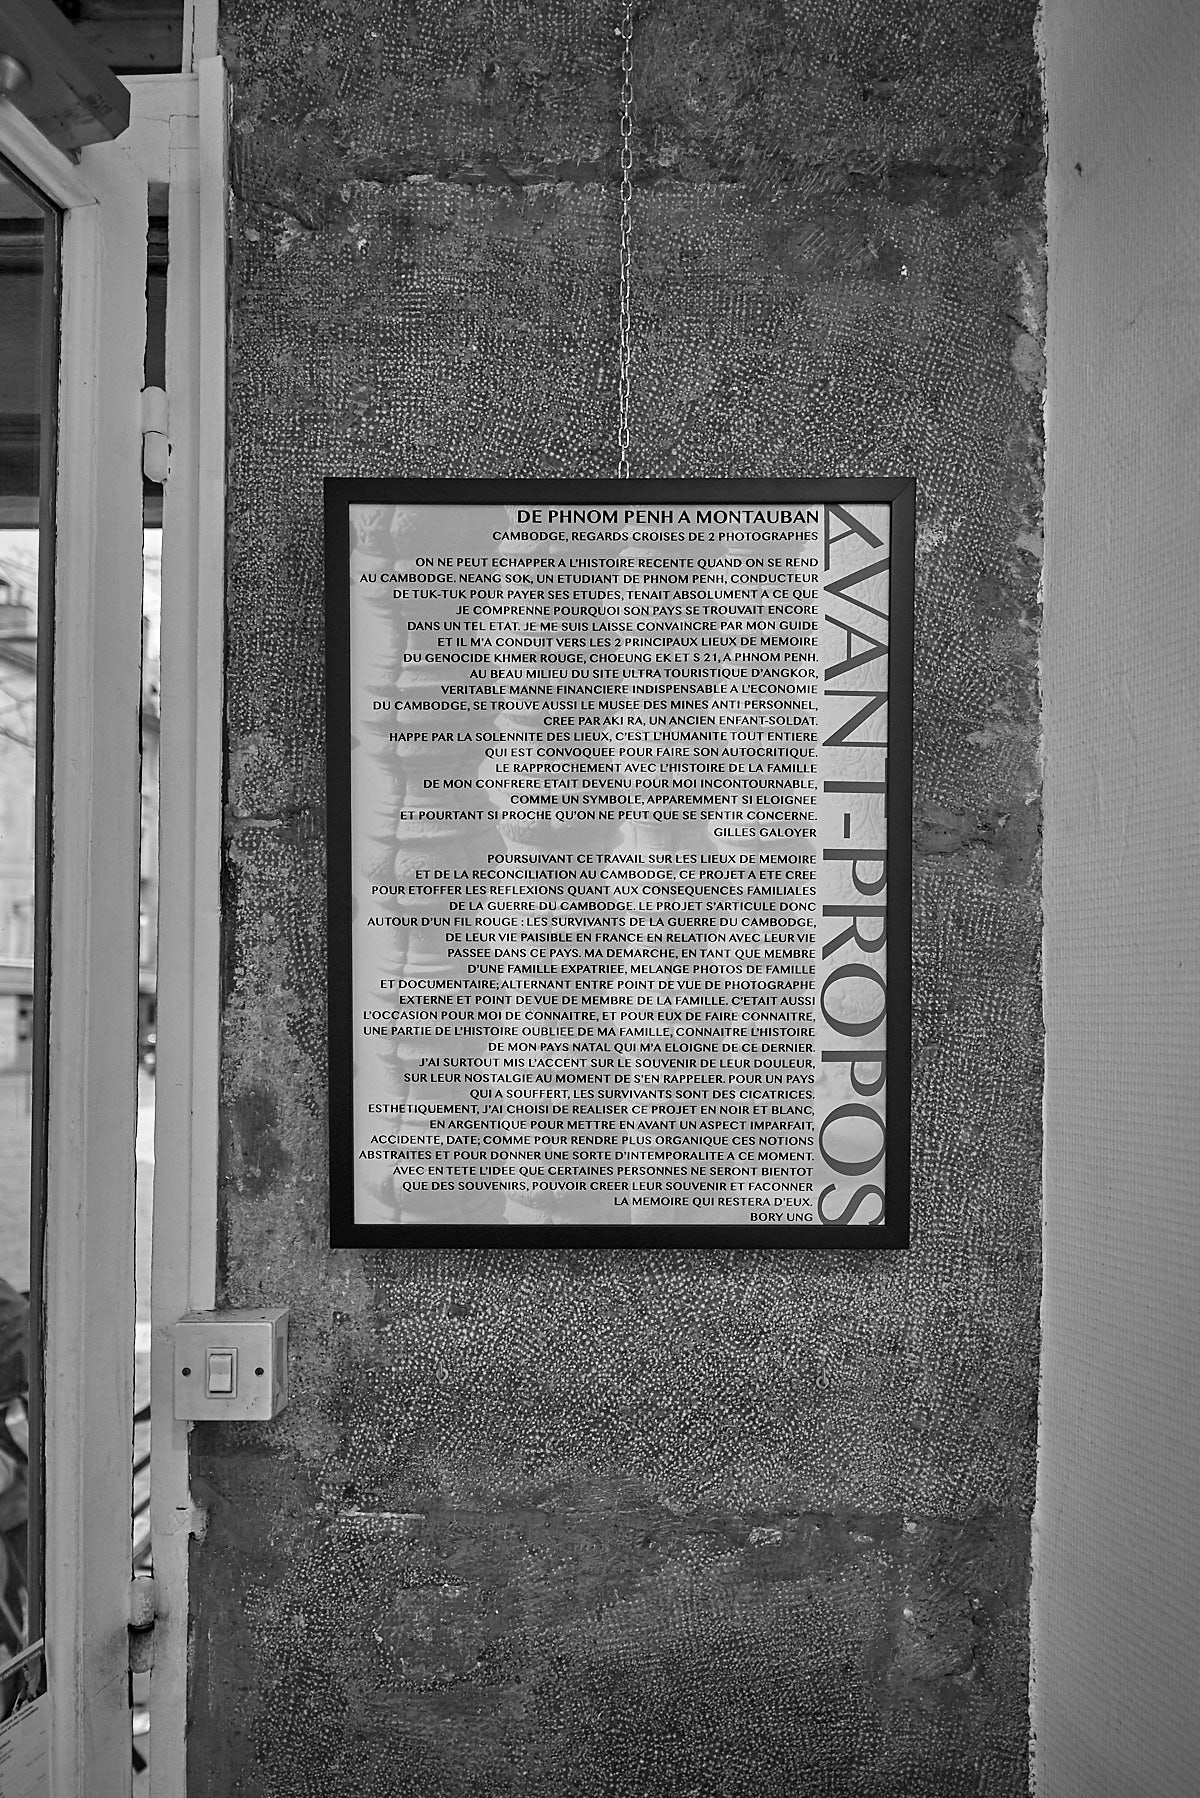 DE PHNOM PENH A MONTAUBAN
CAMBODGE, REGARDS CROISES DE 2 PHOTOGRAPHES
ON NE PEUT ECHAPPER A L'HISTOIRE RECENTE QUAND ON SE REND
AU CAMBODGE. NEANG SOK, UN ETUDIANT DE PHNOM PENH, CONDUCTEUR
DE TUK-TUK POUR PAYER SES ETUDES, TENAIT ABSOLUMENT A CE QUE
JE COMPRENNE POURQUOI SON PAYS SE TROUVAIT ENCORE
DANS UN TEL ETAT. JE ME SUIS LAISSE CONVAINCRE PAR MON GUIDE
ET IL M'A CONDUIT VERS LES 2 PRINCIPAUX LIEUX DE MEMOIRE
DU GENOCIDE KHMER ROUGE, CHOEUNG EK ET S 21, A PHNOM PENH.
AU BEAU MILIEU DU SITE ULTRA TOURISTIQUE D'ANGKOR,
VERITABLE MANNE FINANCIERE INDISPENSABLE A L'ECONOMIE
DU CAMBODGE, SE TROUVE AUSSI LE MUSEE DES MINES ANTI PERSONNEL,
CREE PAR AKI RA, UN ANCIEN ENFANT-SOLDAT.
HAPPE PAR LA SOLENNITE DES LIEUX, C'EST L'HUMANITE TOUT ENTIERE
QUI EST CONVOQUEE POUR FAIRE SON AUTOCRITIQUE.
LE RAPPROCHEMENT AVEC L'HISTOIRE DE LA FAMILLE
DE MON CONFRERE ETAIT DEVENU POUR MOI INCONTOURNABLE,
COMME UN SYMBOLE, APPAREMMENT SI ELOIGNEE
ET POURTANT SI PROCHE QU'ON NE PEUT QUE SE SENTIR CONCERNE.
GILLES GALOYER
POURSUIVANT CE TRAVAIL SUR LES LIEUX DE MEMOIRE
ET DE LA RECONCILIATION AU CAMBODGE, CE PROJET A ETE CREE
POUR ETOFFER LES REFLEXIONS QUANT AUX CONSEQUENCES FAMILIALES
DE LA GUERRE DU CAMBODGE. LE PROJET S'ARTICULE DONC
AUTOUR D'UN FIL ROUGE : LES SURVIVANTS DE LA GUERRE DU CAMBODGE,
DE LEUR VIE PAISIBLE EN FRANCE EN RELATION AVEC LEUR VIE
PASSEE DANS CE PAYS. MA DEMARCHE, EN TANT QUE MEMBRE
D'UNE FAMILLE EXPATRIEE, MELANGE PHOTOS DE FAMILLE
ET DOCUMENTAIRE; ALTERNANT ENTRE POINT DE VUE DE PHOTOGRAPHE
EXTERNE ET POINT DE VUE DE MEMBRE DE LA FAMILLE. C'ETAIT AUSSI
L'OCCASION POUR MOI DE CONNAITRE, ET POUR EUX DE FAIRE CONNAITRE,
UNE PARTIE DE L'HISTOIRE OUBLIEE DE MA FAMILLE, CONNAITRE L'HISTOIRE
DE MON PAYS NATAL QUI M'A ELOIGNE DE CE DERNIER.
J'AI SURTOUT MIS L'ACCENT SUR LE SOUVENIR DE LEUR DOULEUR,
SUR LEUR NOSTALGIE AU MOMENT DE S'EN RAPPELER. POUR UN PAYS
QUI A SOUFFERT, LES SURVIVANTS SONT DES CICATRICES.
ESTHETIQUEMENT, J'AI CHOISI DE REALISER CE PROJET EN NOIR ET BLANC,
EN ARGENTIQUE POUR METTRE EN AVANT UN ASPECT IMPARFAIT,
ACCIDENTE, DATE; COMME POUR RENDRE PLUS ORGANIQUE CES NOTIONS
ABSTRAITES ET POUR DONNER UNE SORTE D'INTEMPORALITE A CE MOMENT.
AVEC EN TETE L'IDEE QUE CERTAINES PERSONNES NE SERONT BIENTOT
QUE DES SOUVENIRS, POUVOIR CREER LEUR SOUVENIR ET FACONNER
LA MEMOIRE QUI RESTERA D'EUX.
BORY UNG
AVANT-PROPOS